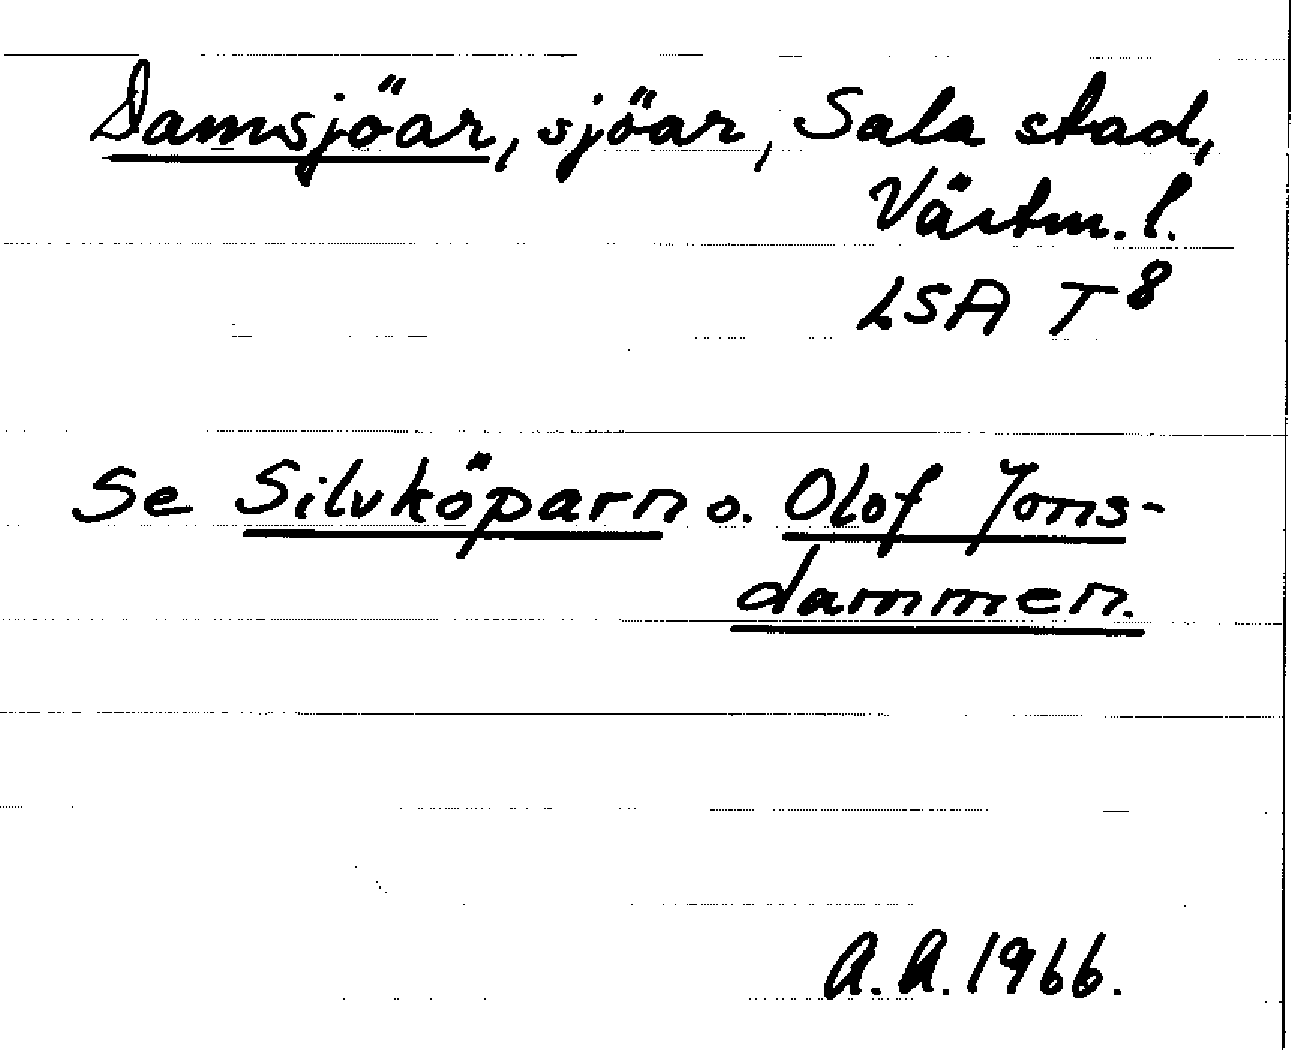 Damsjöar, sjöar, Sala stad,
Västm. l.
LSA T 8
Se Silvköparn o. Olof Jons-
dammen.
A.A. 1966.